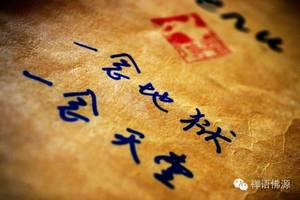 一念地狱
一念天堂
禅语佛源